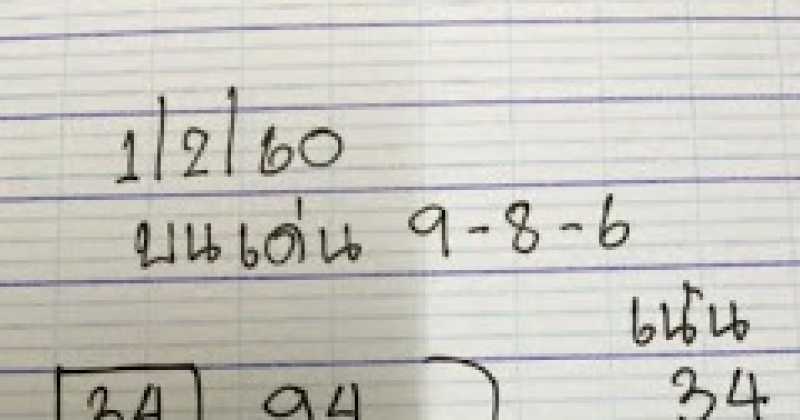 1/2/60
บนเด่น 9-8-6
เน้น
34 94 34